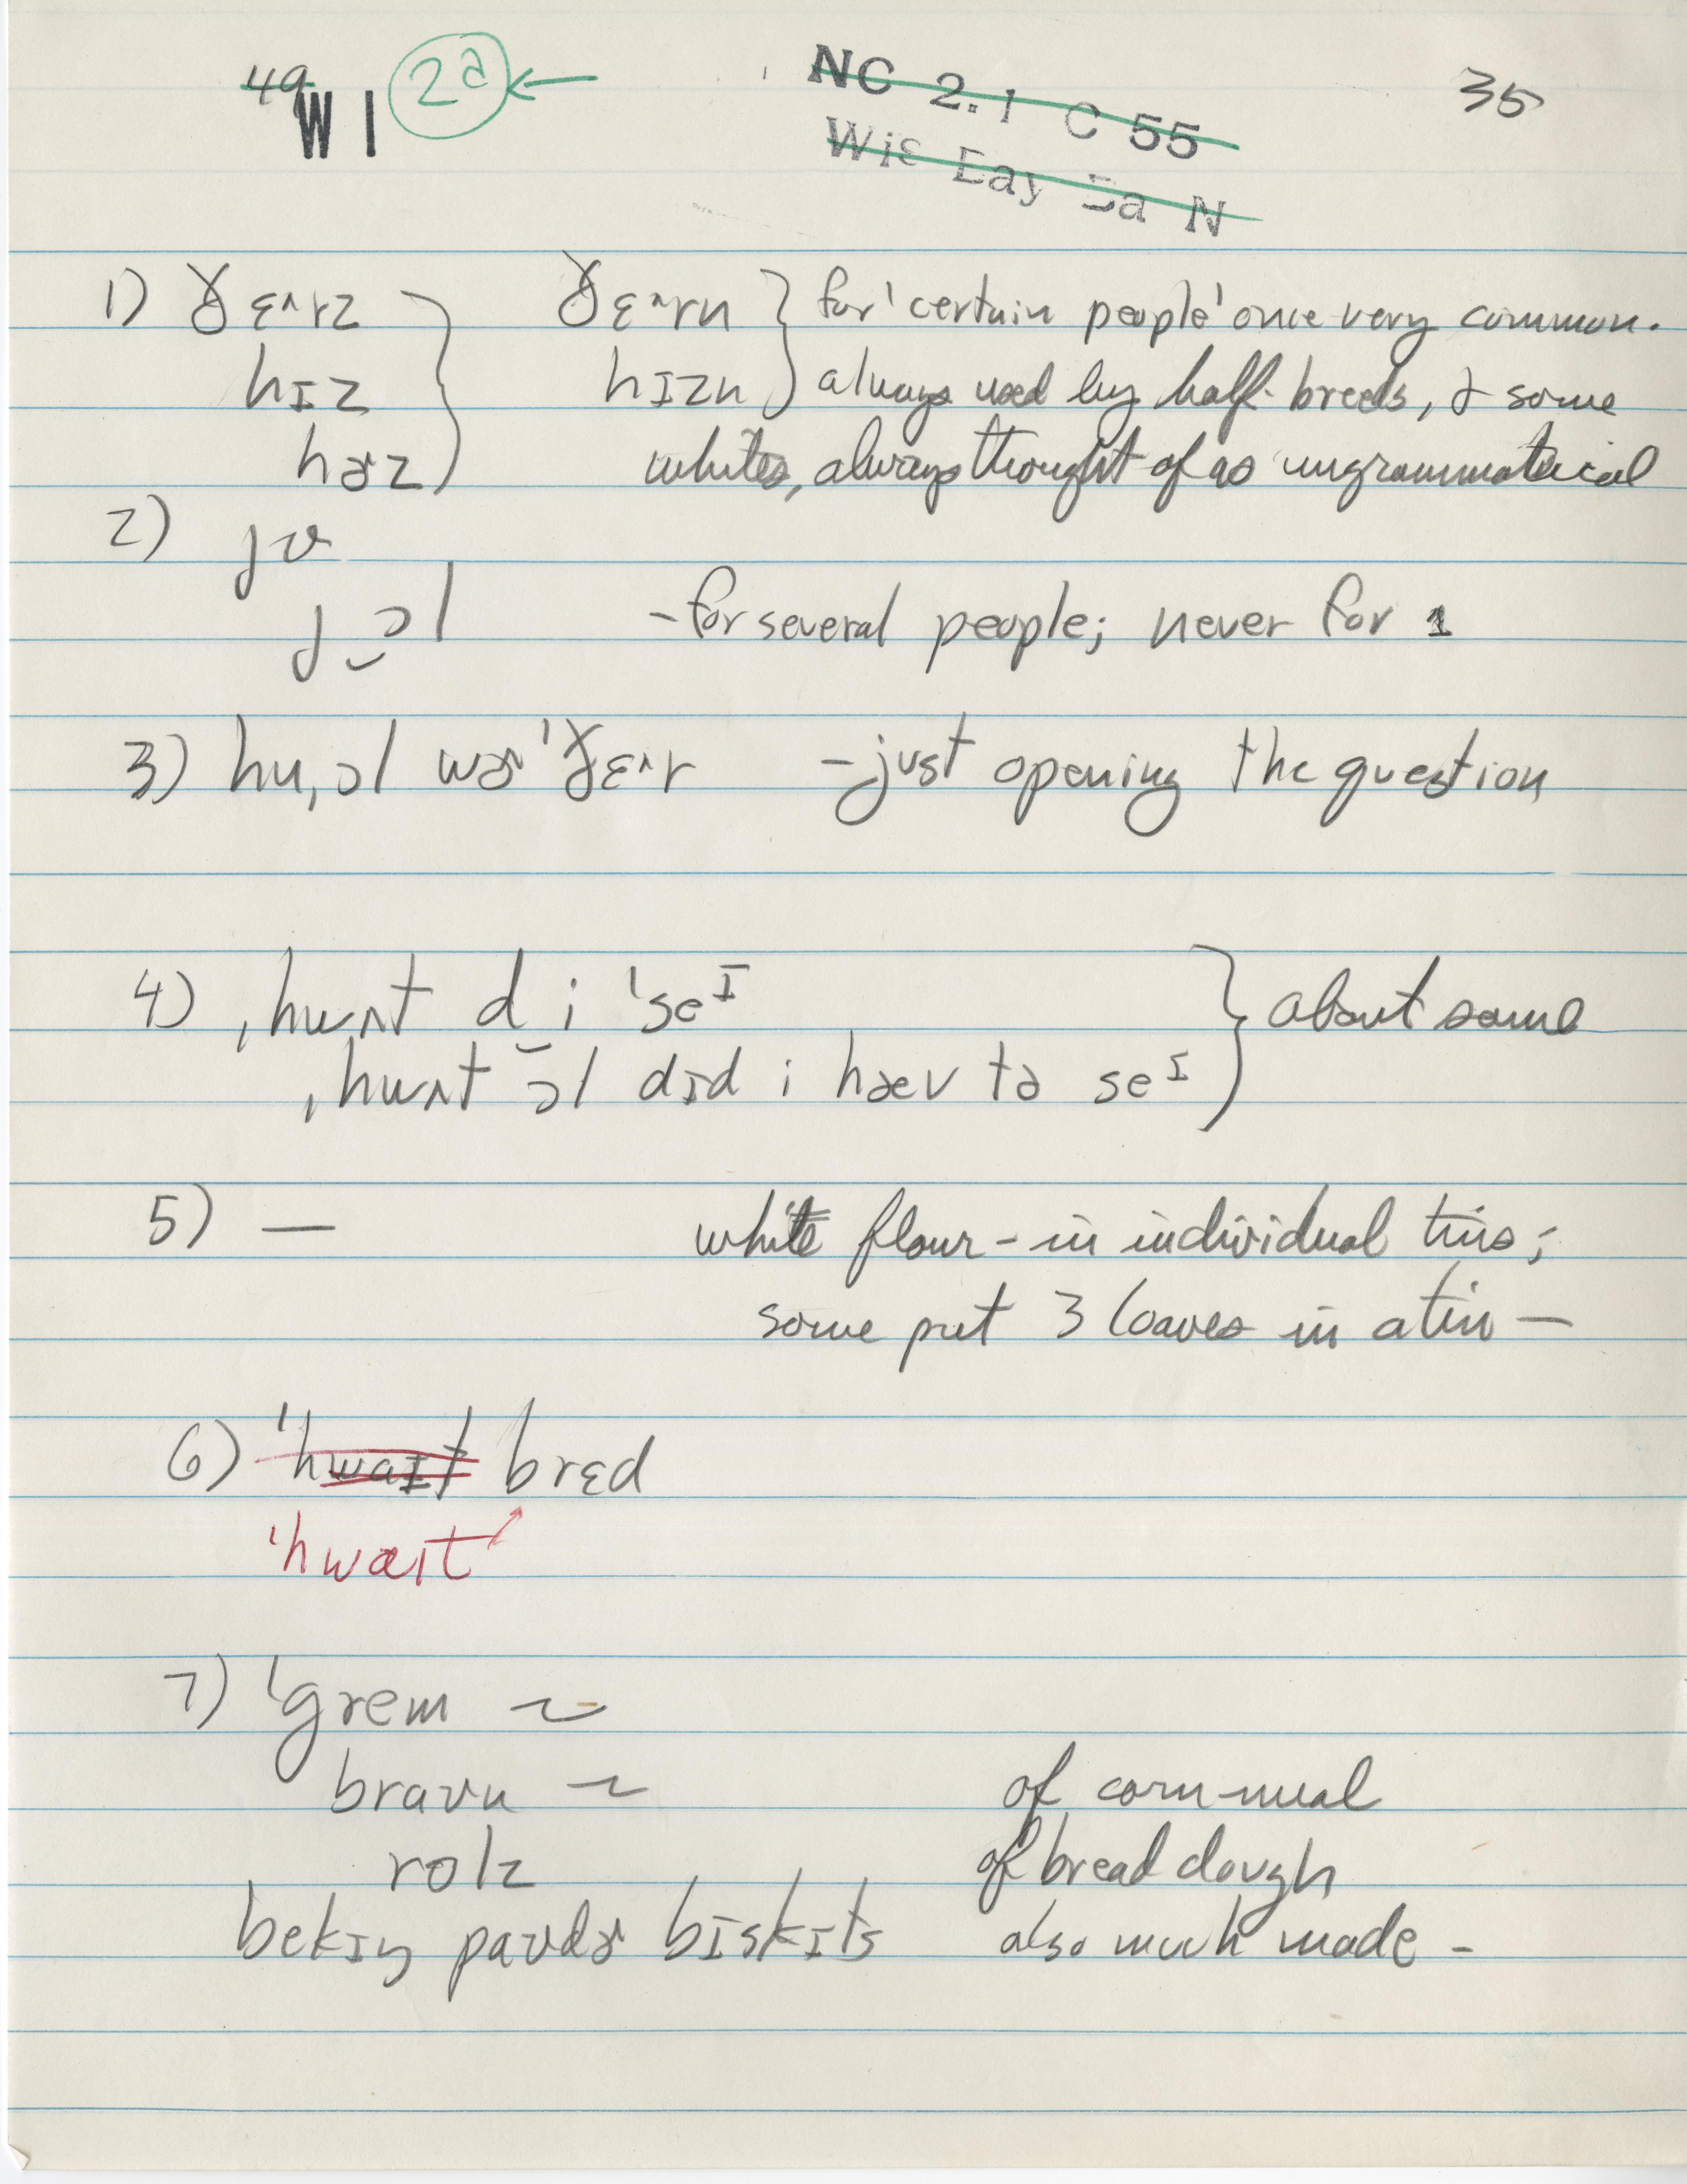 49 WI 2a ← NC 2.1 C 55 35
Wis Bay Ba N
1) ɣɛ^rz } ɣɛ^rn } for 'certain people' once very common.
hɪz hɪzn always used by half-breeds, & some
hɚz whites, always thought of as ungrammatical
2) jʊ
j‿ɔl - for several people; never for 1
3) hu,ɔl wɚ 'ɣɛ^r - just opening the question
4) ,hwʌt d‿i 'seᴵ } about same
,hwʌt‿ɔl dɪd i hæv tə seᴵ
5) — white flour - in individual tins;
some put 3 loaves in a tin —
6) 'hwaɪt brɛd
'hwaɪt
7) 'grem ~
braʊn ~ of corn-meal
rolz of bread dough
bekɪŋ paʊdɚ bɪskɪts also much made -